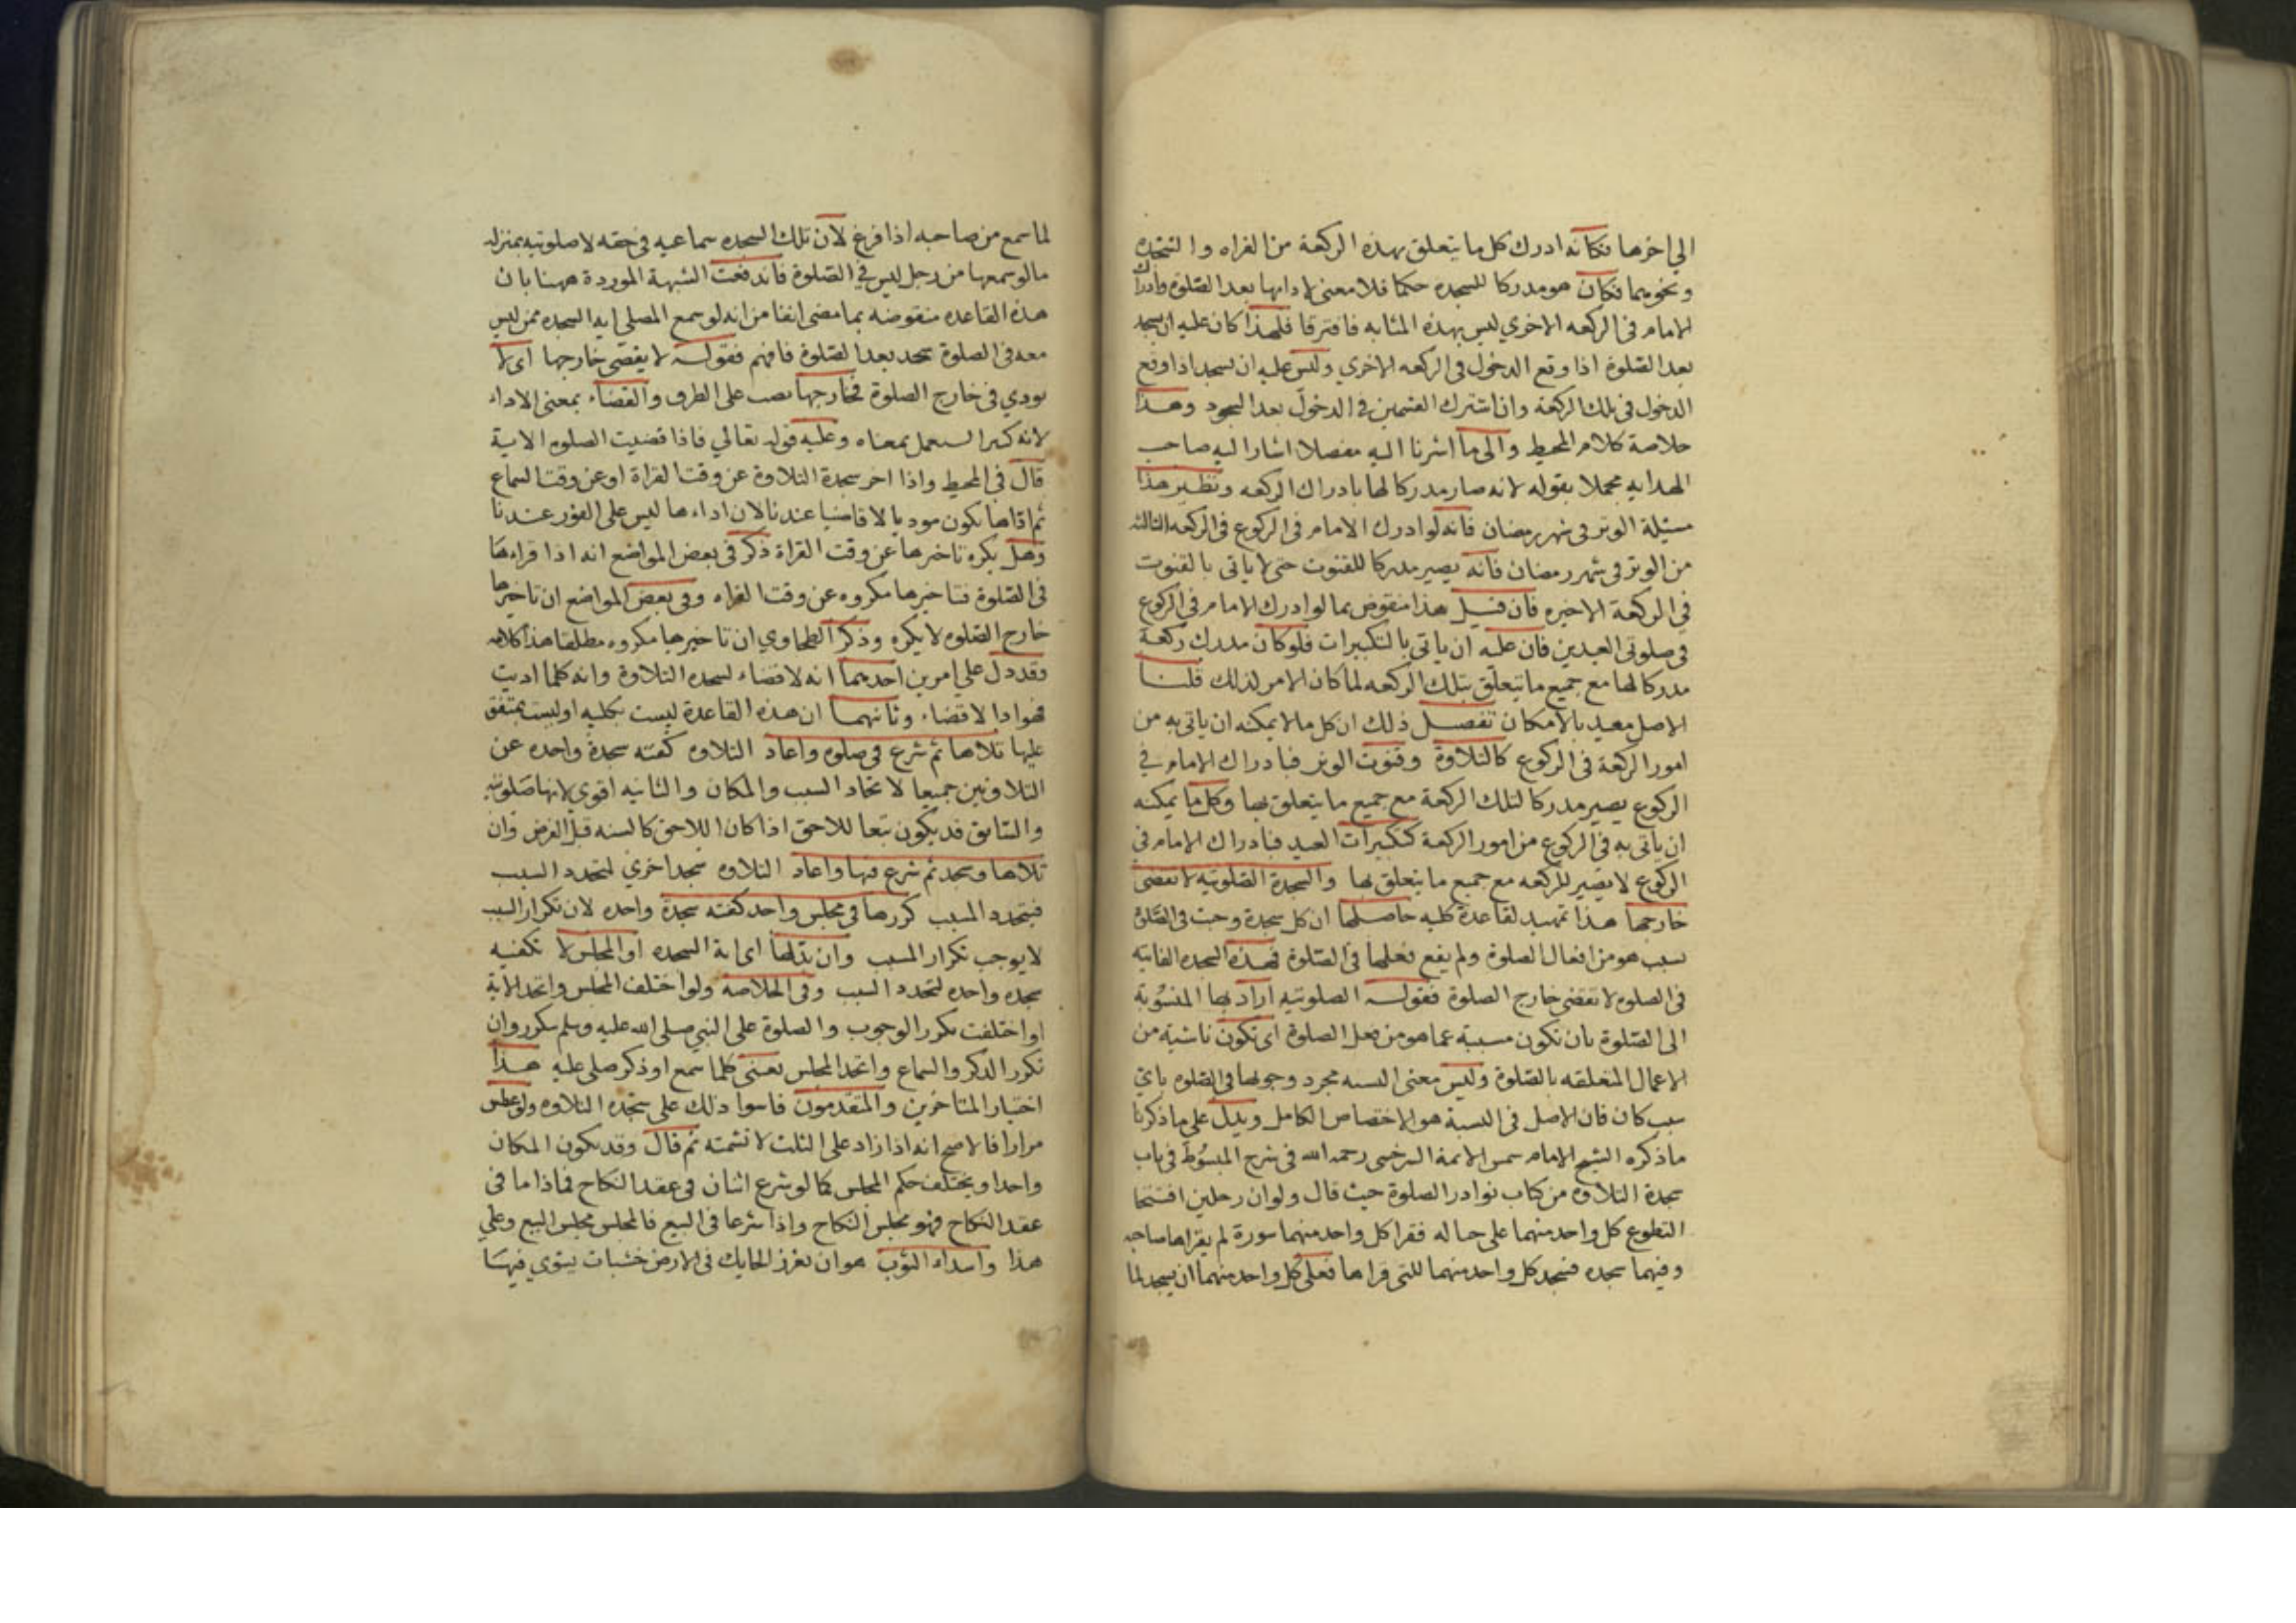 الي اخرها فكانه ادرك كل ما يتعلق بهذه الركعة من القراه والسجده
ونحوهما فكان هو مدركا للسجده حكما فلا معنى لادايها بعد الصلوة وادراك
الامام في الركعه الاخري ليس بهذه المثابه فافترقا فلهذا كان عليه ان يسجد
بعد الصلوة اذا وقع الدخول في الركعه الاخري وليس عليه ان يسجد اذا وقع
الدخول في تلك الركعة وان اشترك القسمين في الدخول بعد السجود وهذا
خلاصة كلام المحيط والى ما اشرنا اليه مفصلا اشار اليه صاحب
الهدايه مجملا بقوله لانه صار مدركا لها بادراك الركعه ونظير هذا
مسئلة الوتر في شهر رمضان فانه لو ادرك الامام في الركوع في الركعه الثالثه
من الوتر في شهر رمضان فانه يصير مدركا للقنوت حتى لا ياتى بالقنوت
في الركعة الاخيره فان قيل هذا منقوض بما لو ادرك الامام في الركوع
في صلوتى العيدين فان عليه ان ياتى بالتكبيرات فلو كان مدرك ركعة
مدركا لها مع جميع ما يتعلق بتلك الركعه لما كان الامر لذلك قلنا
الاصل مقيد بالامكان تفصيل ذلك ان كل ما لا يمكنه ان ياتى به من
امور الركعة في الركوع كالتلاوة وقنوت الوتر فبادراك الامام في
الركوع يصير مدركا لتلك الركعة مع جميع ما يتعلق بها وكل ما يمكنه
ان ياتى به في الركوع من امور الركعة كتكبيرات العيد فبادراك الامام في
الركوع لا يصير للركعه مع جميع ما يتعلق بها والسجدة الصلوتيه لا تقضى
خارجها هذا تمهيد لقاعدة كليه حاصلها ان كل سجدة وجبت في الصلوة
بسبب هو من افعال الصلوة ولم يقع فعلها في الصلوة فهذه السجده الفايته
في الصلوه لا تقضى خارج الصلوة فقوله الصلوتيه اراد بها المنسوبة
الى الصلوة بان تكون مسببة عما هو من فعل الصلوة اى تكون ناشية من
الاعمال المتعلقه بالصلوة وليس معنى النسبه مجرد وجوبها في الصلوه باي
سبب كان فان الاصل في النسبة هو الاختصاص الكامل ويدل على ما ذكرنا
ما ذكره الشيخ الامام شمس الائمة السرخسى رحمه الله في شرح المبسوط في باب
سجدة التلاوه من كتاب نوادر الصلوة حيث قال ولو ان رجلين افتتحا
التطوع كل واحد منهما على حاله فقرا كل واحد منهما سورة لم يقراها صاحبه
وفيهما سجده فسجد كل واحد منهما للتى قراها فعلى كل واحد منهما ان يسجد لما
لما سمع من صاحبه اذا فرغ لان تلك السجده سماعيه في حقه لا صلوتيه بمنزله
ما لو سمعها من رجل ليس في الصلوة فاندفعت الشبهة الموردة ههنا بان
هذه القاعده منقوضه بما مضى انفا من انه لو سمع المصلى ايه السجده ممن ليس
معه في الصلوة سجد بعد الصلوة فافهم فقوله لا يقضى خارجها اى لا
يودي في خارج الصلوة فخارجها نصب على الظرف والقضاء بمعنى الاداء
لانه كثيرا يستعمل بمعناه وعليه قوله تعالي فاذا قضيت الصلوه الاية
قال في المحيط واذا اخر سجدة التلاوة عن وقت القراة او عن وقت السماع
ثم اداها يكون موديا لا قاضيا عندنا لان اداءها ليس على الفور عندنا
وهل يكره تاخيرها عن وقت القراة ذكر في بعض المواضع انه اذا قراءها
في الصلوة فتاخيرها مكروه عن وقت القراه وفي بعض المواضع ان تاخيرها
خارج الصلوه لا يكره وذكر الطحاوي ان تاخيرها مكروه مطلقا هذا كلامه
وقد دل على امرين احدهما انه لا قضاء لسجده التلاوة وانه كلما اديت
فهو ادا لا قضاء وثانيهما ان هذه القاعدة ليست بكليه او ليست بمتفق
عليها تلاها ثم شرع في صلوه واعاد التلاوه كفته سجدة واحده عن
التلاوتين جميعا لاتحاد السبب والمكان والثانيه اقوى لانها صلوتيه
والسابق قد يكون تبعا للاحق اذا كان اللاحق كالسنه قبل الفرض وان
تلاها وسجد ثم شرع فيها واعاد التلاوه سجد اخري لتجدد السبب
فيتجدد المسبب كررها في مجلس واحد كفته سجدة واحده لان تكرار السبب
لا يوجب تكرار المسبب وان بدلها اى اية السجده او المجلس لا تكفيه
سجده واحده لتجدد السبب وفي الخلاصه ولو اختلف المجلس واتحد الاية
او اختلفت يكرر الوجوب والصلوة على النبي صلى الله عليه وسلم يتكرر وان
تكرر الذكر والسماع واتحد المجلس يعنى كلما سمع او ذكر صلى عليه هذا
اختيار المتاخرين والمتقدمون قاسوا ذلك على سجده التلاوه ولو عطس
مرارا فالاصح انه اذا زاد على الثلث لا تشمته ثم قال وقد يكون المكان
واحدا ويختلف حكم المجلس كما لو شرع اثنان في عقد النكاح فماداما في
عقد النكاح فهو مجلس النكاح واذا شرعا في البيع فالمجلس مجلس البيع وعلي
هذا واسداء الثوب هو ان يغرز الحايك في الارض خشبات يسوي فيها